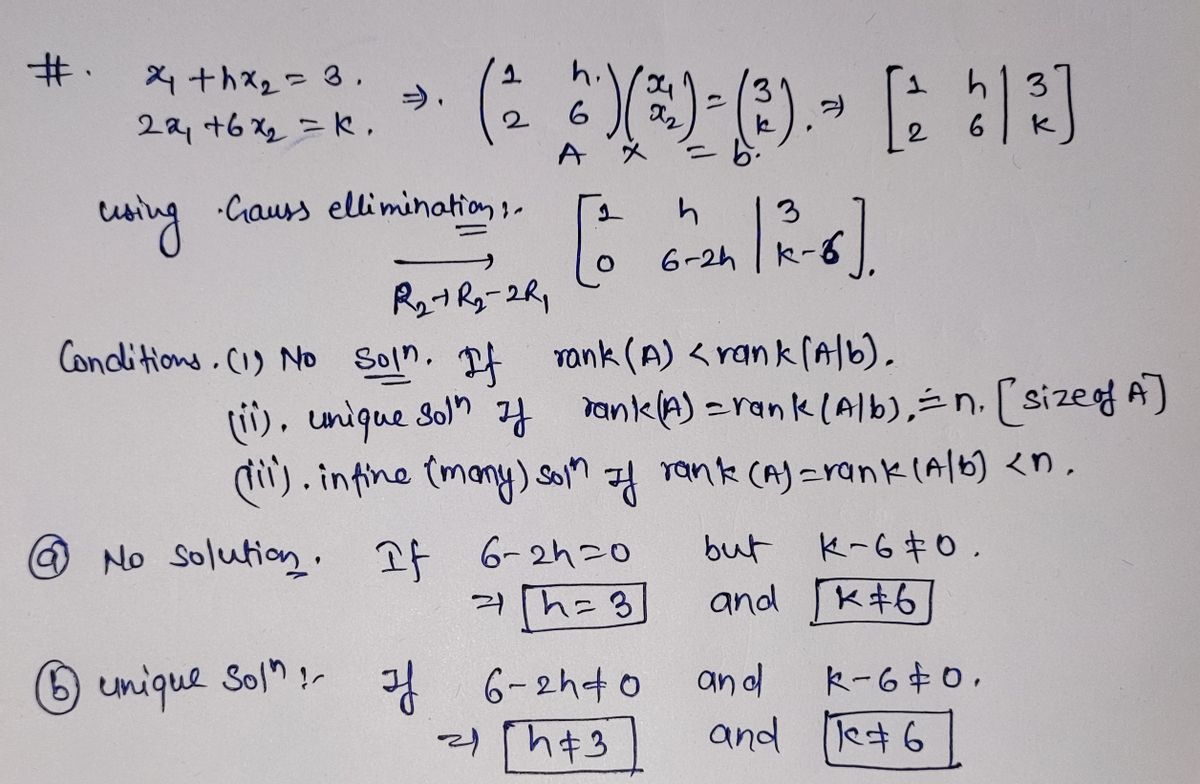 #. x₁ + hx₂ = 3. ⇒. (1 h.)(x₁) = (3) . ⇒ [1 h | 3]
2x₁ + 6x₂ = k. (2 6)(x₂) (k) [2 6 | k]
A X = b.
using Gauss ellimination :- [1 h | 3]
→ [0 6-2h | k-6].
R₂→R₂-2R₁
Conditions. (1) No Solⁿ. If rank(A) < rank(A|b).
(ii). unique Solⁿ If rank(A) = rank(A|b), = n. [size of A]
(iii). infine (many) solⁿ If rank (A) = rank (A|b) < n.
ⓐ No Solution. If 6-2h=0 but k-6≠0.
⇒ h = 3 and k≠6
ⓑ unique Solⁿ :- If 6-2h≠0 and k-6≠0.
⇒ h≠3 and k≠6